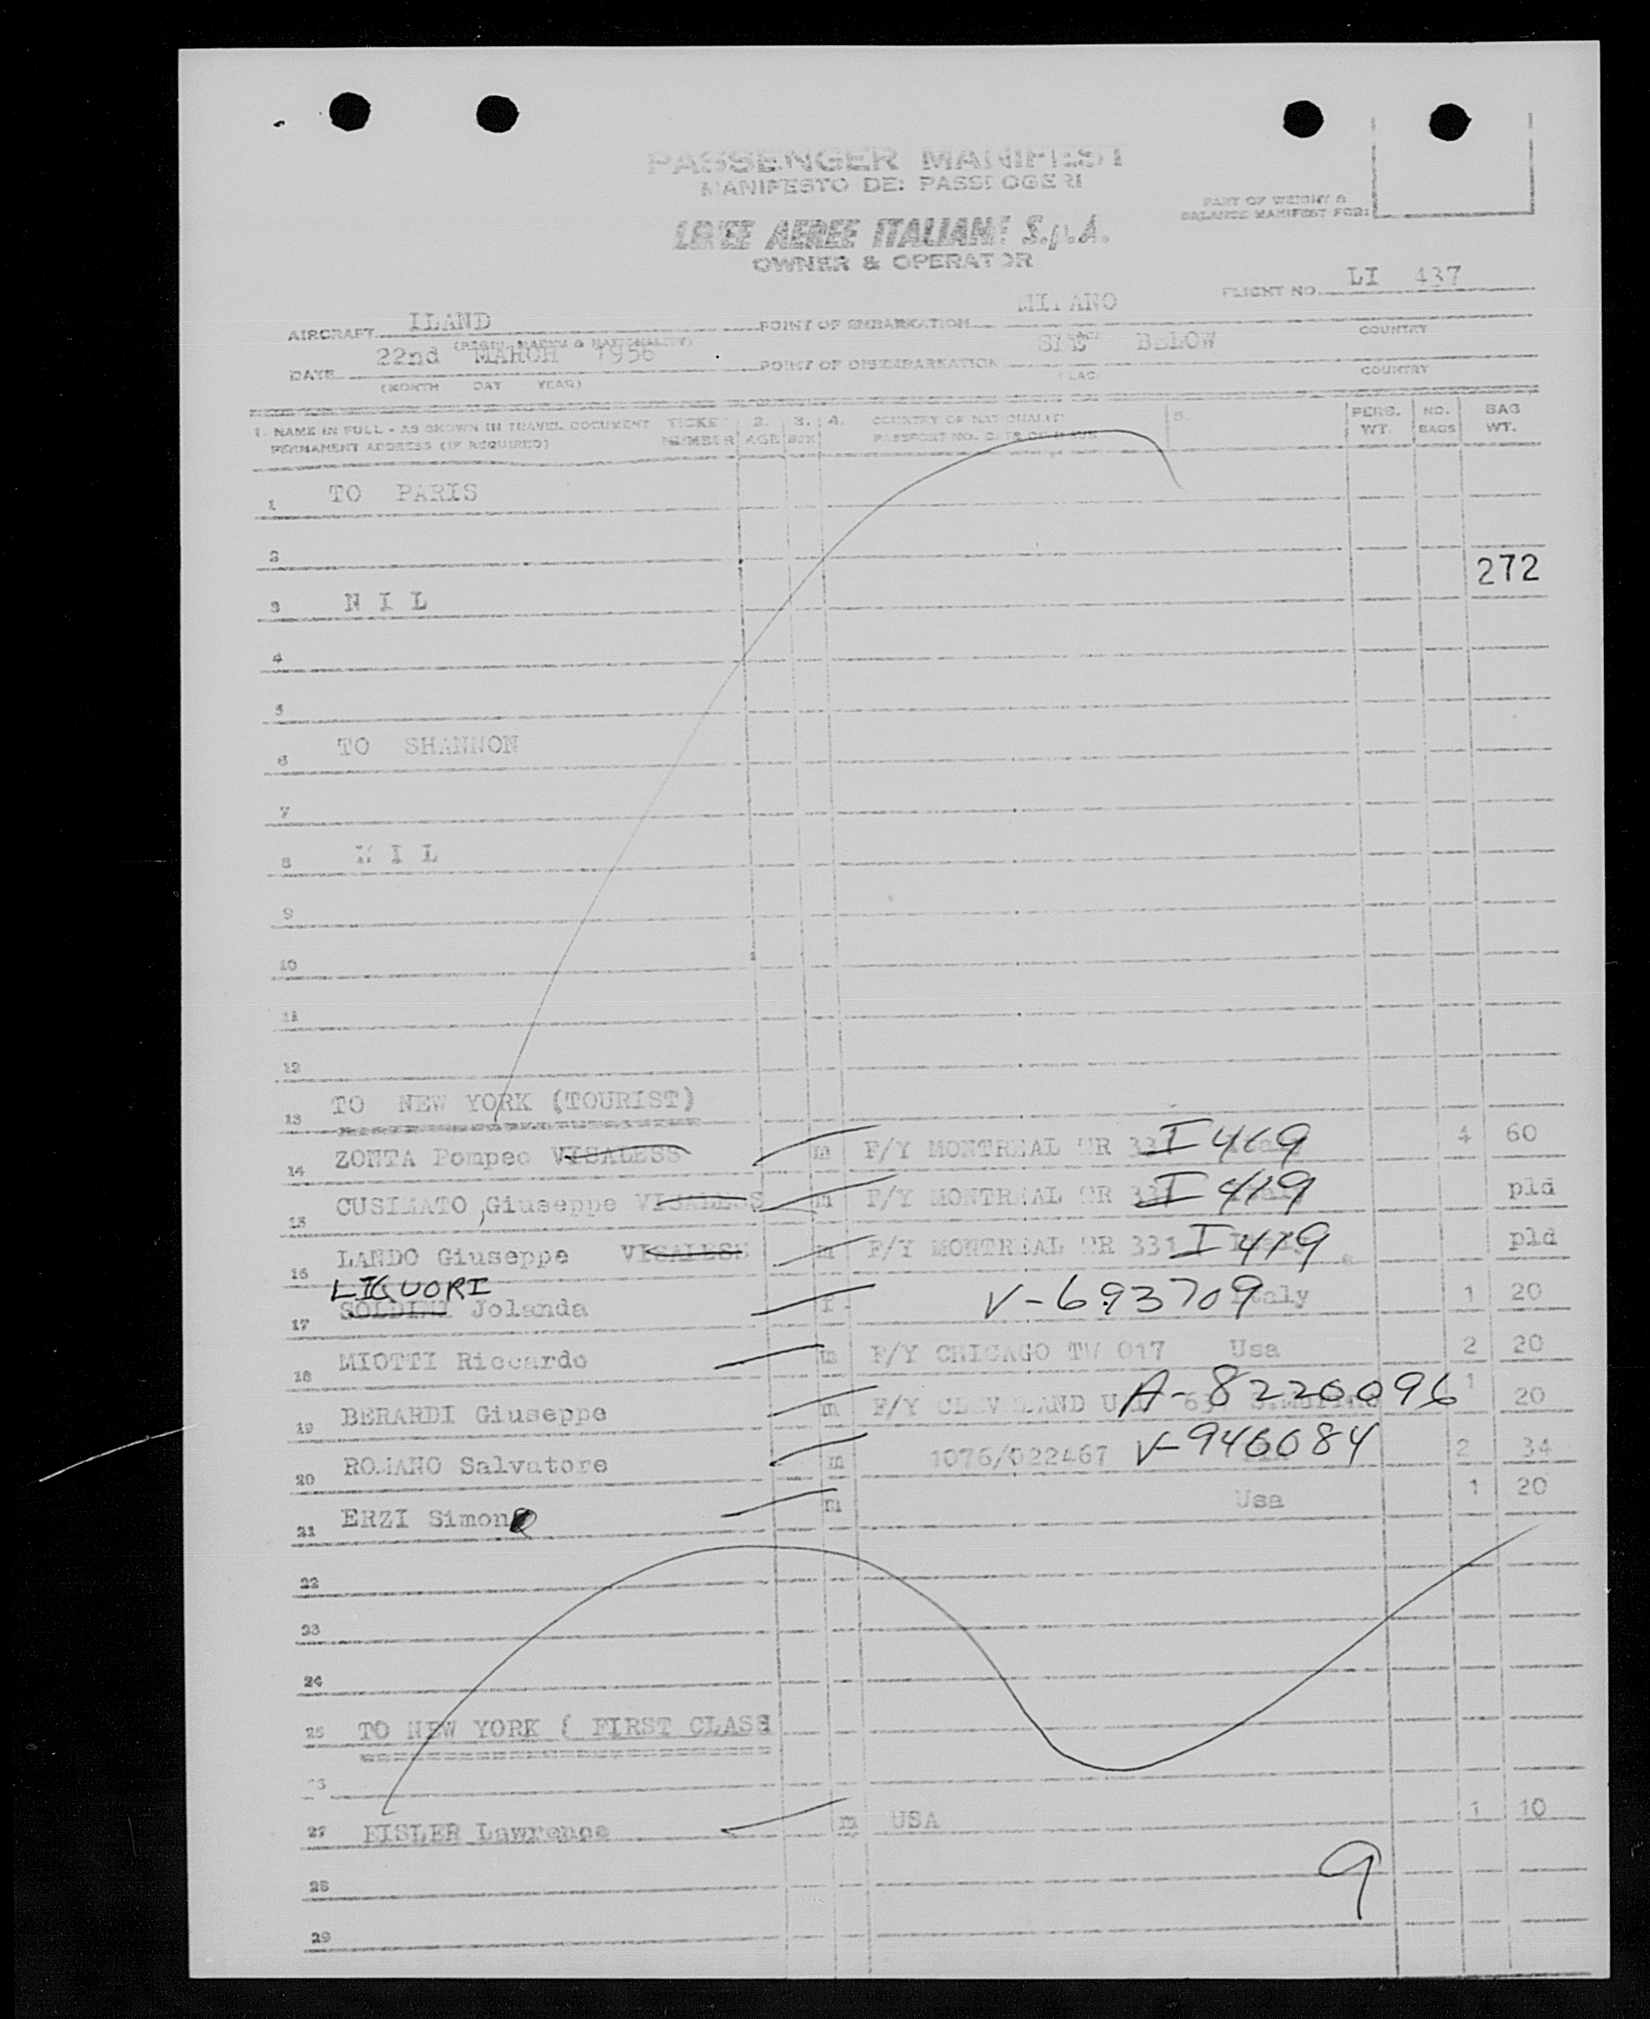 PASSENGER MANIFEST
MANIFESTO DEI PASSEGGERI
PART OF WEIGHT &
BALANCE MANIFEST FOR:
LINEE AEREE ITALIANE S.p.A.
OWNER & OPERATOR
FLIGHT NO. LI 437
AIRCRAFT ILAND POINT OF EMBARKATION MILANO COUNTRY
(REGIS. MARKS & NATIONALITY)
DATE 22nd MARCH 1956 POINT OF DISEMBARKATION SEE BELOW COUNTRY
(MONTH DAY YEAR) PLACE
1. NAME IN FULL - AS SHOWN IN TRAVEL DOCUMENT TICKET 2. 3. 4. COUNTRY OF NATIONALITY 5. PERS. NO. BAG
PERMANENT ADDRESS (IF REQUIRED) NUMBER AGE SEX PASSPORT NO. WT. BAGS WT.
1 TO PARIS
2
272
3 N I L
4
5
6 TO SHANNON
7
8 N I L
9
10
11
12
13 TO NEW YORK (TOURIST)
14 ZONTA Pompeo VISALESS m F/Y MONTREAL TR 331 I 419 4 60
15 CUSIMATO, Giuseppe VISALESS m F/Y MONTREAL TR 331 I 419 pld
16 LANDO Giuseppe VISALESS m F/Y MONTREAL TR 331 I 419 pld
LIGUORI
17 SOLDINI Jolanda f V-693709 Italy 1 20
18 MIOTTI Riccardo m F/Y CHICAGO TW 017 Usa 2 20
19 BERARDI Giuseppe m F/Y CLEVELAND A-8220096 1 20
20 ROMANO Salvatore m 1076/022467 V-946084 2 34
21 ERZI Simone m Usa 1 20
22
23
24
25 TO NEW YORK ( FIRST CLASS
26
27 EISLER Lawrence m USA 1 10
9
28
29